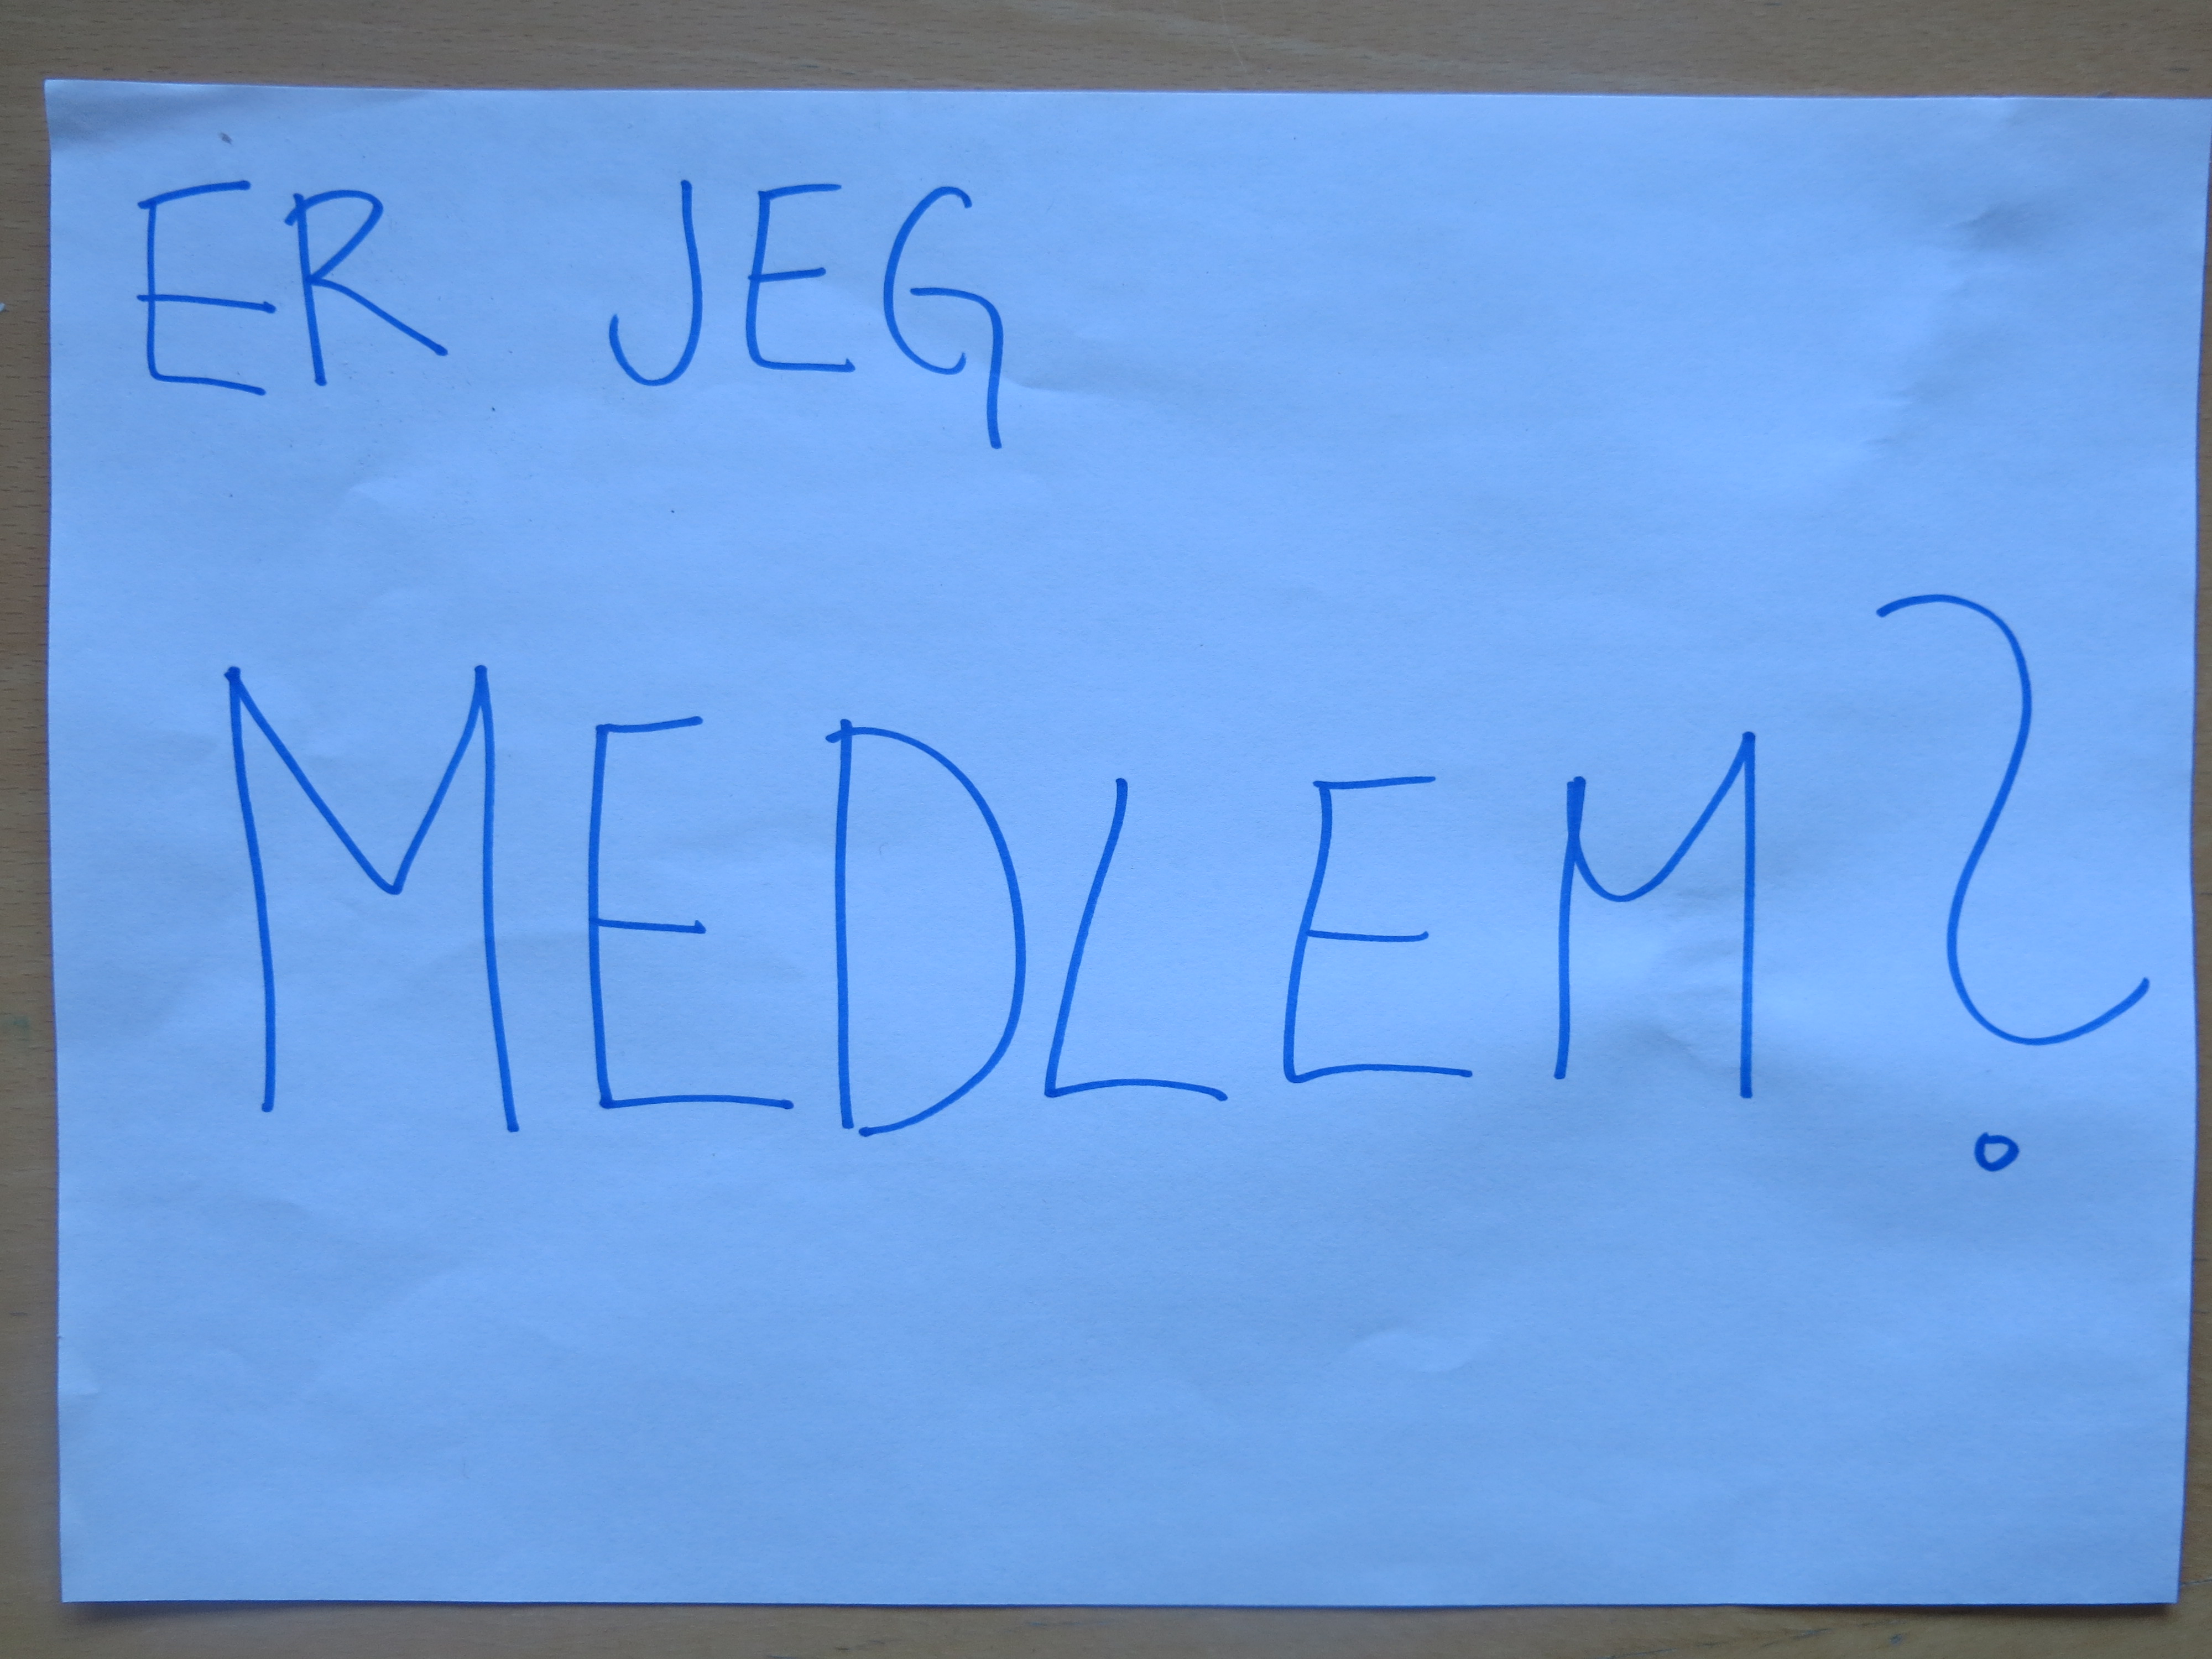 ER JEG
MEDLEM?